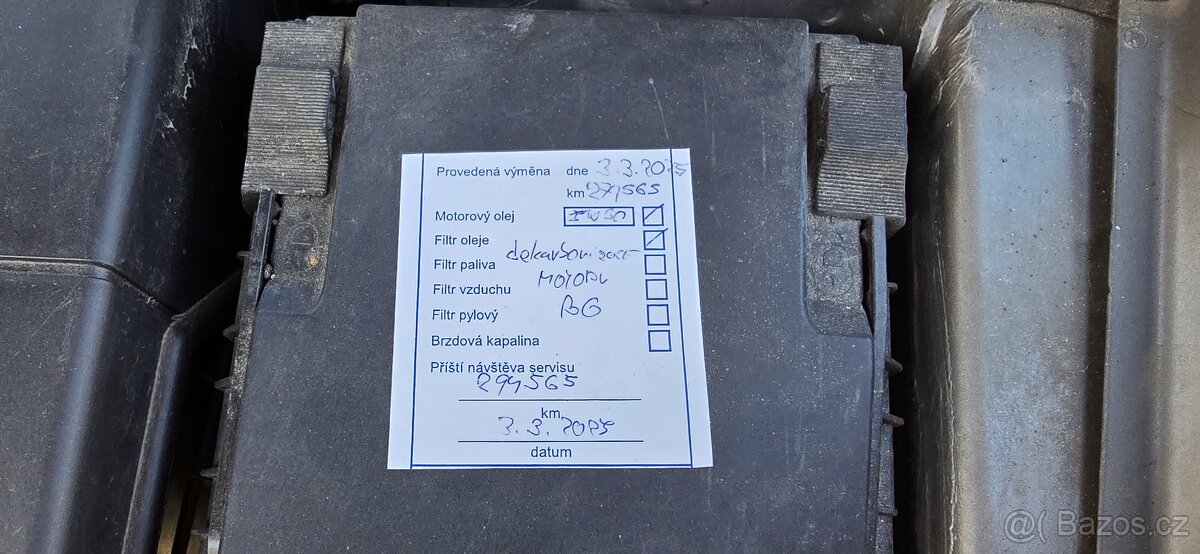 Provedená výměna dne 3.3.2025
km 279565
Motorový olej 5W30
Filtr oleje
dekarbonizace
Filtr paliva
MOTORU
Filtr vzduchu
BG
Filtr pylový
Brzdová kapalina
Příští návštěva servisu
294565
km
3.3.2025
datum
@( Bazos.cz